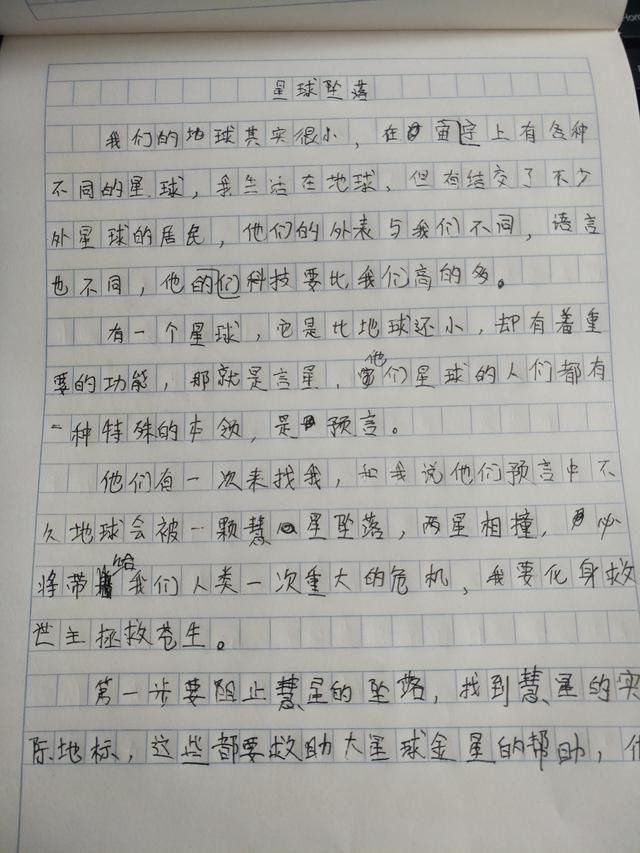 星球坠落
我们的地球其实很小，在宙宇上有各种
不同的星球，我生活在地球，但有结交了不少
外星球的居民，他们的外表与我们不同，语言
也不同，他的们科技要比我们高的多。
有一个星球，它是比地球还小，却有着重
要的功能，那就是言星，他们星球的人们都有
一种特殊的本领，是预言。
他们有一次来找我，和我说他们预言中不
久地球会被一颗慧星坠落，两星相撞，必
将带给我们人类一次重大的危机，我要化身救
世主拯救苍生。
第一步要阻止慧星的坠落，找到慧星的实
际地标，这些都要救助大星球金星的帮助，他